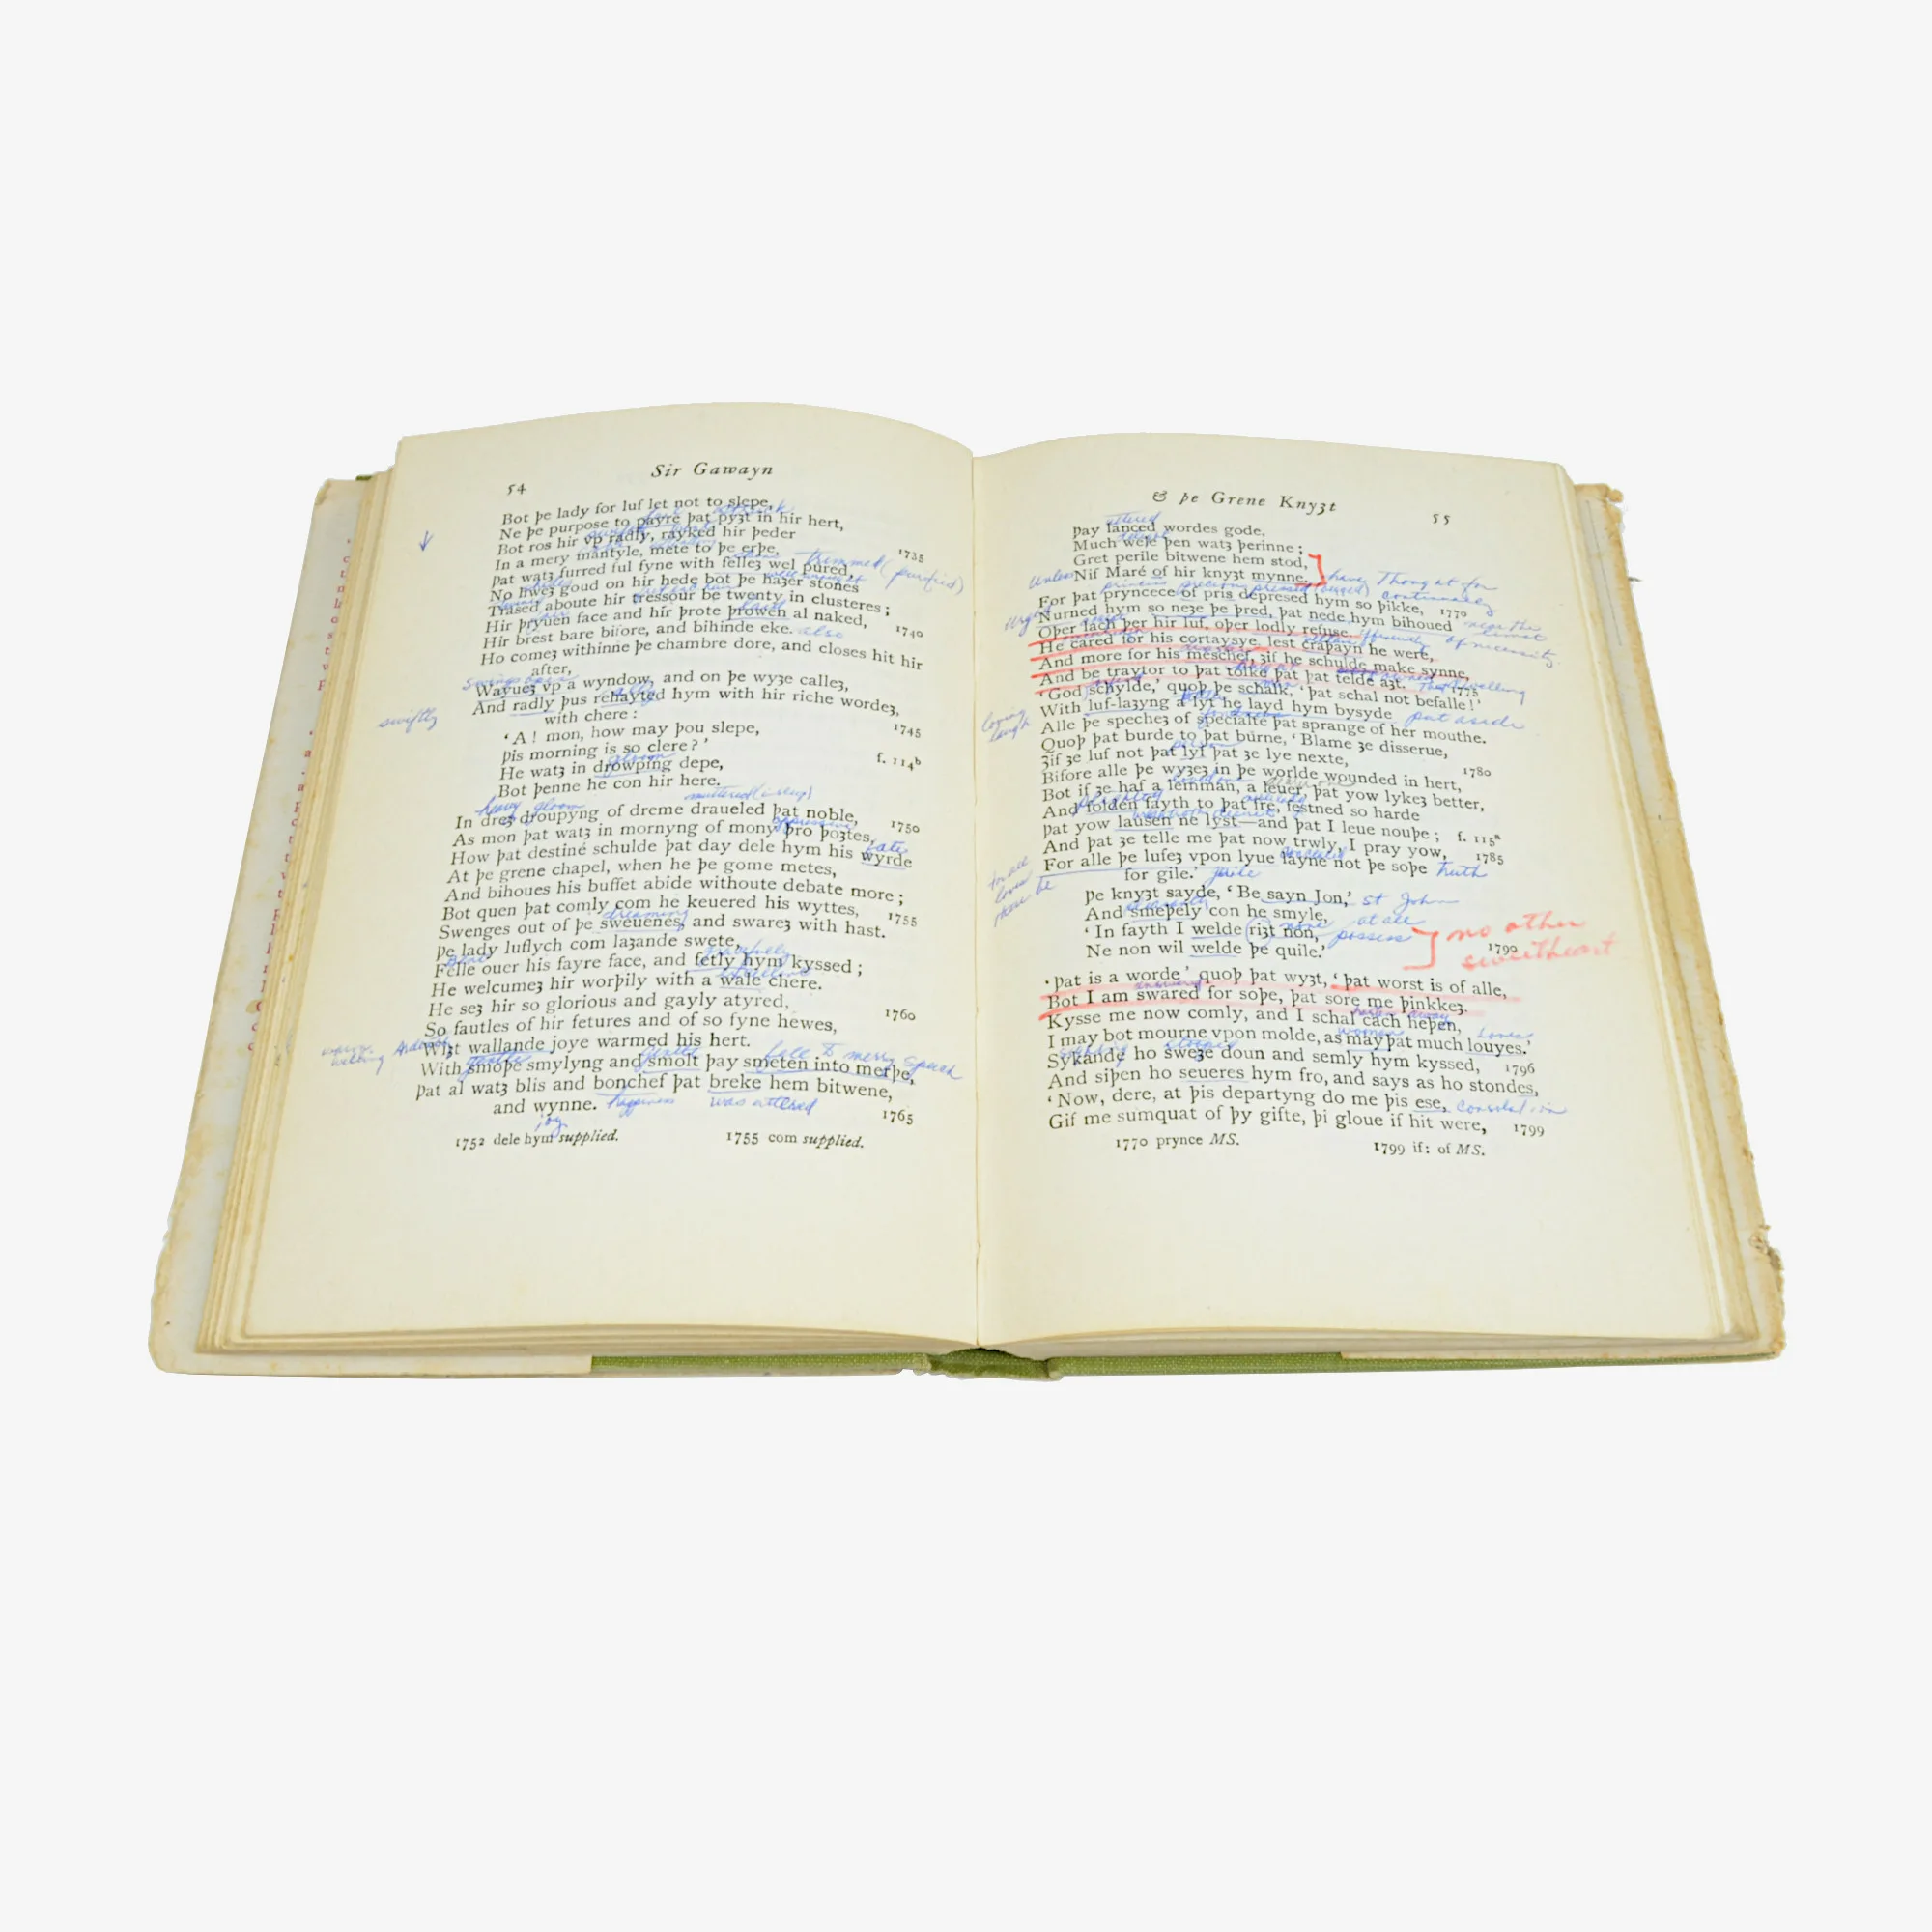 54
Sir Gawayn
Bot þe lady for luf let not to slepe,
Ne þe purpose to payre þat pyȝt in hir hert,
Bot ros hir vp radly, rayked hir þeder
In a mery mantyle, mete to þe erþe, 1735
Þat watȝ furred ful fyne with felleȝ wel pured, trimmed (purified)
No hweȝ goud on hir hede bot þe haȝer stones
Trased aboute hir tressour be twenty in clusteres;
Hir þryuen face and hir þrote þrowen al naked, 1740
Hir brest bare bifore, and bihinde eke. also
Ho comeȝ withinne þe chambre dore, and closes hit hir
after,
Wayueȝ vp a wyndow, and on þe wyȝe calleȝ,
And radly þus rehayted hym with hir riche wordeȝ,
swiftly
with chere:
‘A! mon, how may þou slepe, 1745
Þis morning is so clere?’
gloom
He watȝ in drowping depe, f. 114ᵇ
Bot þenne he con hir here.
heavy gloom
In dreȝ droupyng of dreme draueled þat noble, 1750
oppressive
As mon þat watȝ in mornyng of mony þro þoȝtes,
fate
How þat destiné schulde þat day dele hym his wyrde
At þe grene chapel, when he þe gome metes,
And bihoues his buffet abide withoute debate more;
Bot quen þat comly com he keuered his wyttes, 1755
dreaming
Swenges out of þe sweuenes, and swareȝ with hast.
Þe lady luflych com laȝande swete,
gracefully
Felle ouer his fayre face, and fetly hym kyssed;
He welcumeȝ hir worþily with a wale chere.
He seȝ hir so glorious and gayly atyred, 1760
So fautles of hir fetures and of so fyne hewes,
Wiȝt wallande joye warmed his hert.
fall to merry speech
With smoþe smylyng and smolt þay smeten into merþe,
Þat al watȝ blis and bonchef þat breke hem bitwene,
and wynne. happiness was uttered 1765
joy
1752 dele hym supplied. 1755 com supplied.
& þe Grene Knyȝt
55
uttered
Þay lanced wordes gode,
Much wele þen watȝ þerinne;
Gret perile bitwene hem stod,
Unless Nif Maré of hir knyȝt mynne. have Thought for
princess precious pressed
For þat pryncece of pris depresed hym so þikke, continuously 1770
Nurned hym so neȝe þe þred, þat nede hym bihoued near the limit
Oþer lach þer hir luf, oþer lodly refuse. of necessity
He cared for his cortaysye, lest craþayn he were,
And more for his meschef, ȝif he schulde make synne,
And be traytor to þat tolke þat þat telde aȝt. 1775
‘God schylde,’ quoþ þe schalk, ‘þat schal not befalle!’
loving laugh
With luf-laȝyng a lyt he layd hym bysyde put aside
Alle þe specheȝ of specialté þat sprange of her mouthe.
Quoþ þat burde to þat burne, ‘Blame ȝe disserue,
person
Ȝif ȝe luf not þat lyf þat ȝe lye nexte, 1780
Bifore alle þe wyȝeȝ in þe worlde wounded in hert,
Bot if ȝe haf a lemman, a leuer, þat yow lykeȝ better,
And folden fayth to þat fre, festned so harde
Þat yow lausen ne lyst—and þat I leue nouþe; f. 115ᵃ
And þat ȝe telle me þat now trwly, I pray yow, 1785
For alle þe lufeȝ vpon lyue layne not þe soþe truth
for gile.’ guile
Þe knyȝt sayde, ‘Be sayn Jon,’ st John
And smeþely con he smyle,
‘In fayth I welde riȝt non, none at all
Ne non wil welde þe quile.’ possess 1790
no other
sweetheart
‘Þat is a worde’ quoþ þat wyȝt, ‘þat worst is of alle,
Bot I am swared for soþe, þat sore me þinkkeȝ.
Kysse me now comly, and I schal cach heþen,
woman loves
I may bot mourne vpon molde, as may þat much louyes.’
Sykande ho sweȝe doun and semly hym kyssed, 1796
And siþen ho seueres hym fro, and says as ho stondes,
‘Now, dere, at þis departyng do me þis ese, consolation
Gif me sumquat of þy gifte, þi gloue if hit were, 1799
1770 prynce MS. 1799 if: of MS.